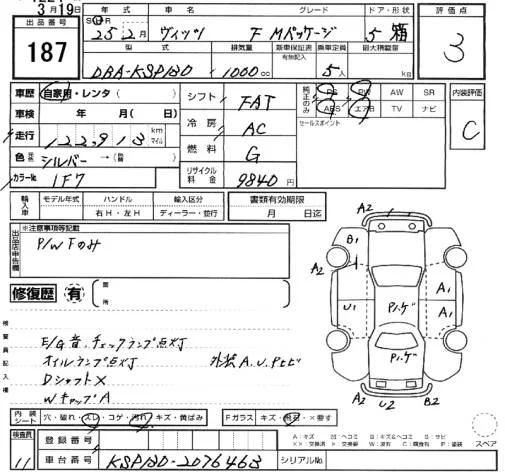 3月19日
出品番号
187
年式
車名
グレード
ドア・形状
評価点
S H R
25年2月
ヴィッツ
F Mパッケージ
5 箱
3
型式
排気量
新車保証書
有無記入
乗車定員
最大積載量
DBA-KSP130
1000cc
5人
kg
車歴
自家用・レンタ( )
車検 年 月( 日)
走行 122,913 km マイル
色 元色 シルバー→(替 )
カラーNo. 1F7
シフト FAT
冷房 AC
燃料 G
リサイクル料金 9840円
純正のみ
PS PW AW SR
ABS エアB TV ナビ
セールスポイント
内装評価
C
輸入車
モデル年式
ハンドル
輸入区分
右H・左H
ディーラー・並行
書類有効期限
月 日迄
出品店申告欄
※注意事項等記載
P/W下のみ
修復歴 有
箇所
検査員記入欄
E/G音、チェックランプ点灯
オイルランプ点灯
外装A.U.Pヒビ
DシャフトX
WキャップA
A2
B1
A2
A1
U1
A1
Pハゲ
Pハゲ
A2
U2
B2
内装シート
穴・破れ・スレ・コゲ・汚れ・キズ・黄ばみ
Fガラス キズ・飛石・×要す
A:キズ M:ヘコミ B:キズ&ヘコミ S:サビ
××:交換済 ×:交換要 W:波有 C:腐食有 P:塗装
スペア
検査員
11
登録番号
車台番号 KSP130-2076463
シリアルNo.